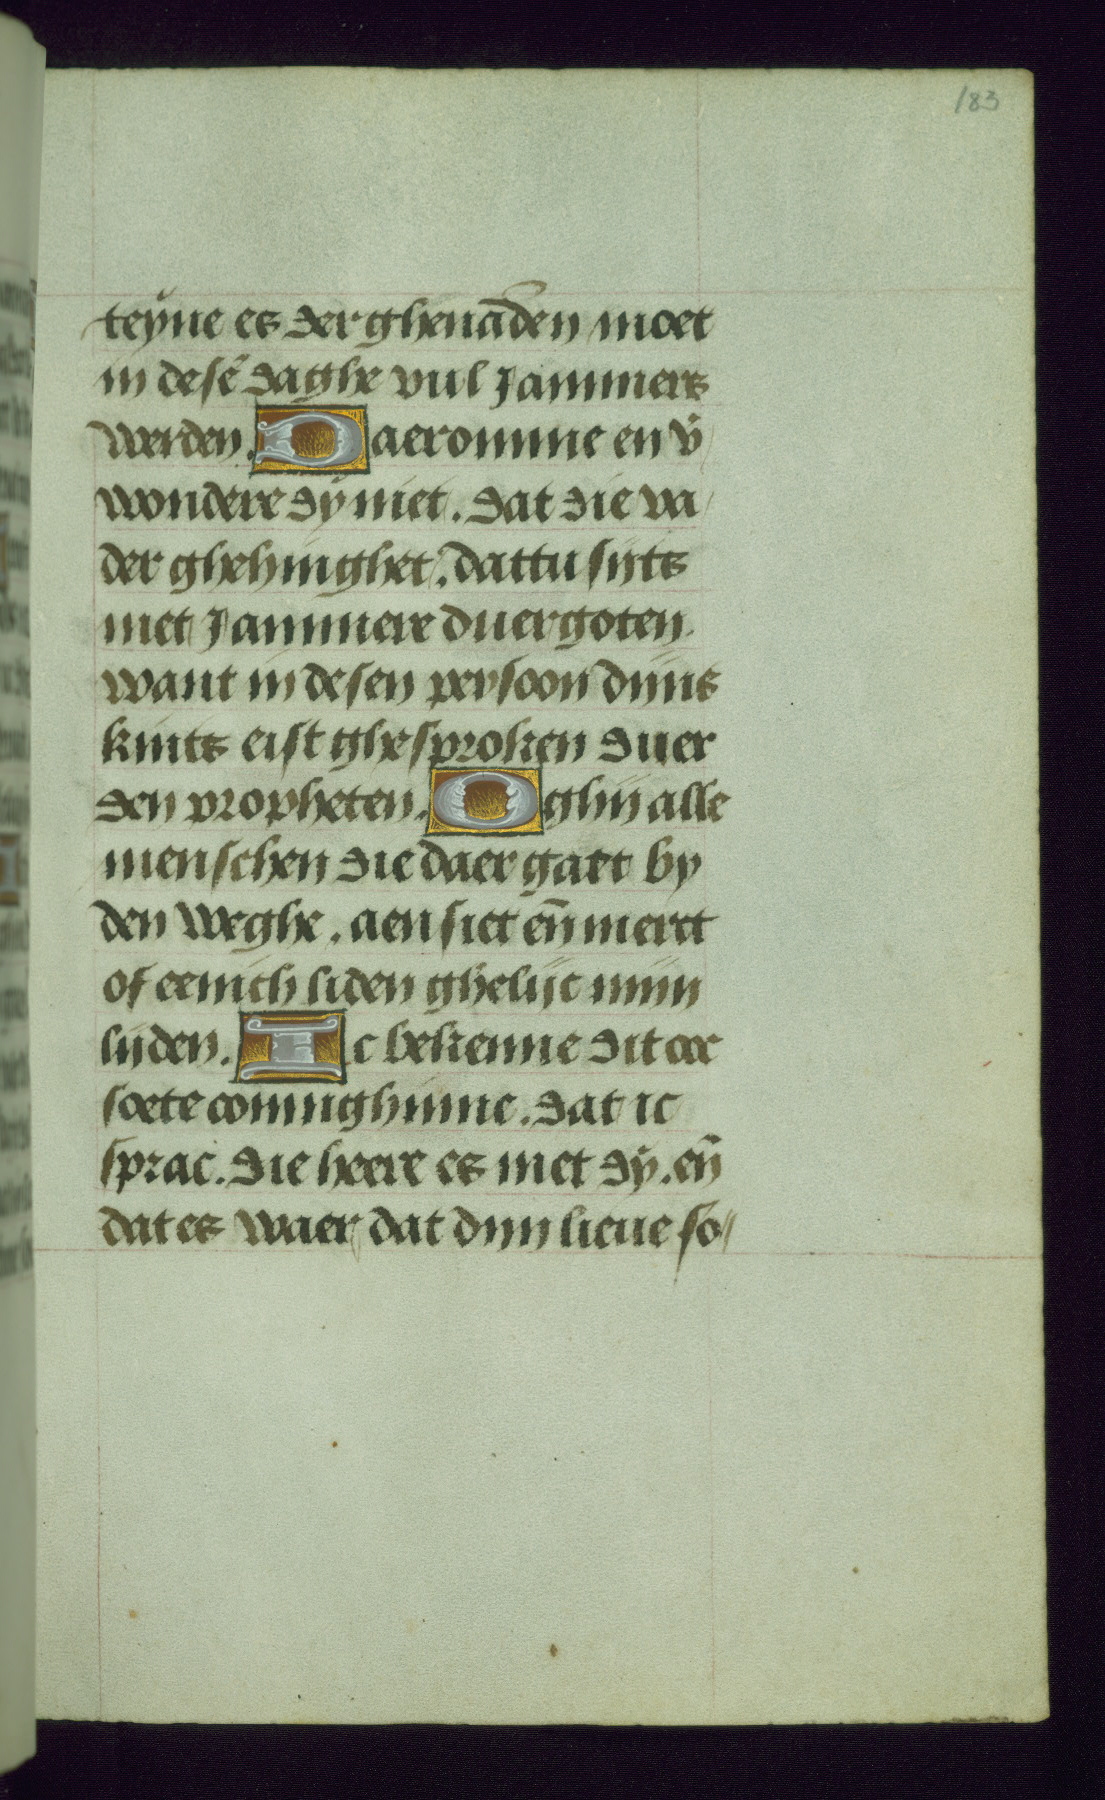 183
teyne es der ghenādē moet
in desē daghe vul Jammers
werden. Daeromme en v̄
wondere dy niet. dat die va
der ghehinghet. dattu sijts
met Jammere duergoten.
want in desen persoon dijns
kints eist ghesproken duer
den propheten. O ghij alle
menschen die daer gaet by
den weghe. aensiet en̄ merct
of eenich liden ghelijc mijn
lijden. Ic bekenne dit oec
soete coninghinne. dat ic
sprac. die heere es met dy. en̄
dat es waer dat dijn lieue so//